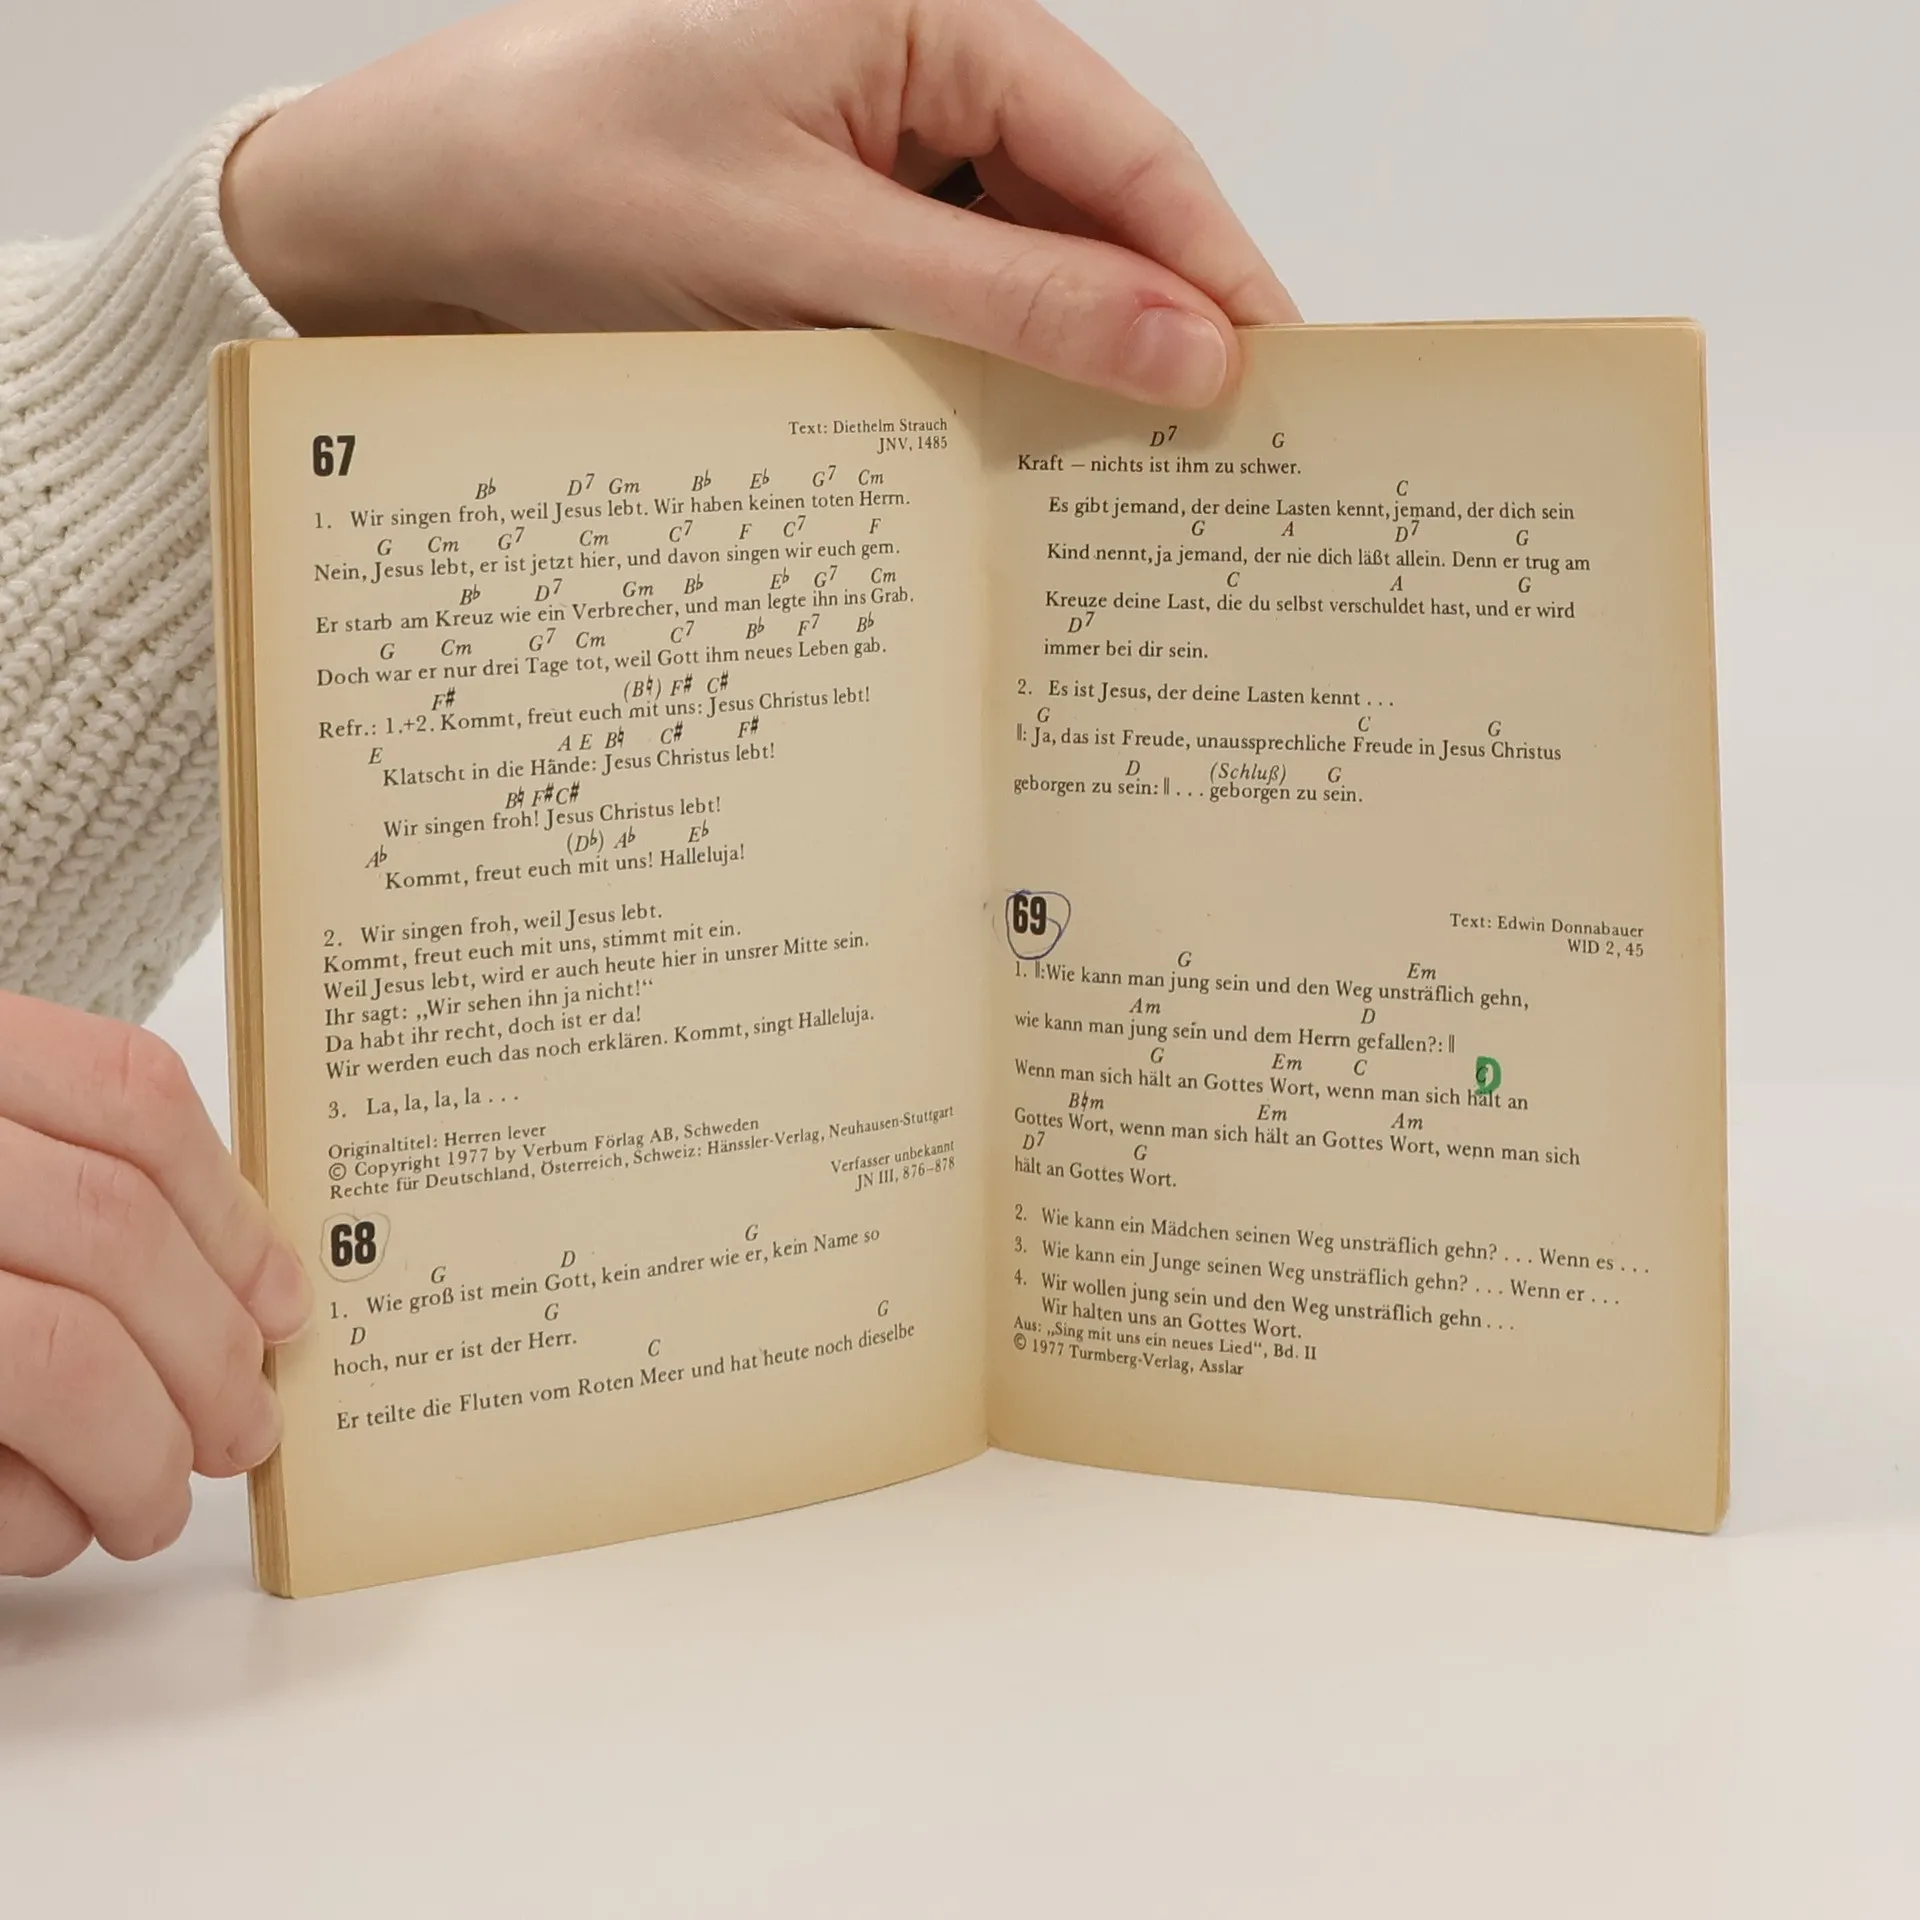 67
Text: Diethelm Strauch
JNV, 1485
B♭ D7 Gm B♭ E♭ G7 Cm
1. Wir singen froh, weil Jesus lebt. Wir haben keinen toten Herrn.
G Cm G7 Cm C7 F C7 F
Nein, Jesus lebt, er ist jetzt hier, und davon singen wir euch gern.
B♭ D7 Gm B♭ E♭ G7 Cm
Er starb am Kreuz wie ein Verbrecher, und man legte ihn ins Grab.
G Cm G7 Cm C7 B♭ F7 B♭
Doch war er nur drei Tage tot, weil Gott ihm neues Leben gab.
F# (B♮) F# C#
Refr.: 1.+2. Kommt, freut euch mit uns: Jesus Christus lebt!
E A E B♮ C# F#
Klatscht in die Hände: Jesus Christus lebt!
B♮ F# C#
Wir singen froh! Jesus Christus lebt!
A♭ (D♭) A♭ E♭
Kommt, freut euch mit uns! Halleluja!
2. Wir singen froh, weil Jesus lebt.
Kommt, freut euch mit uns, stimmt mit ein.
Weil Jesus lebt, wird er auch heute hier in unsrer Mitte sein.
Ihr sagt: „Wir sehen ihn ja nicht!“
Da habt ihr recht, doch ist er da!
Wir werden euch das noch erklären. Kommt, singt Halleluja.
3. La, la, la, la . . .
Originaltitel: Herren lever
© Copyright 1977 by Verbum Förlag AB, Schweden
Rechte für Deutschland, Österreich, Schweiz: Hänssler-Verlag, Neuhausen-Stuttgart
Verfasser unbekannt
JN III, 876–878
68
G D G
1. Wie groß ist mein Gott, kein andrer wie er, kein Name so
D G
hoch, nur er ist der Herr.
C G
Er teilte die Fluten vom Roten Meer und hat heute noch dieselbe
D7 G
Kraft – nichts ist ihm zu schwer.
C
Es gibt jemand, der deine Lasten kennt, jemand, der dich sein
G A D7 G
Kind nennt, ja jemand, der nie dich läßt allein. Denn er trug am
C A G
Kreuze deine Last, die du selbst verschuldet hast, und er wird
D7
immer bei dir sein.
2. Es ist Jesus, der deine Lasten kennt . . .
G C G
‖: Ja, das ist Freude, unaussprechliche Freude in Jesus Christus
D (Schluß) G
geborgen zu sein: ‖ . . . geborgen zu sein.
69
Text: Edwin Donnabauer
WID 2, 45
G Em
1. ‖:Wie kann man jung sein und den Weg unsträflich gehn,
Am D
wie kann man jung sein und dem Herrn gefallen?: ‖
G Em C D
Wenn man sich hält an Gottes Wort, wenn man sich hält an
B♮m Em Am
Gottes Wort, wenn man sich hält an Gottes Wort, wenn man sich
D7 G
hält an Gottes Wort.
2. Wie kann ein Mädchen seinen Weg unsträflich gehn? . . . Wenn es . . .
3. Wie kann ein Junge seinen Weg unsträflich gehn? . . . Wenn er . . .
4. Wir wollen jung sein und den Weg unsträflich gehn . . .
Wir halten uns an Gottes Wort.
Aus: „Sing mit uns ein neues Lied“, Bd. II
© 1977 Turmberg-Verlag, Asslar